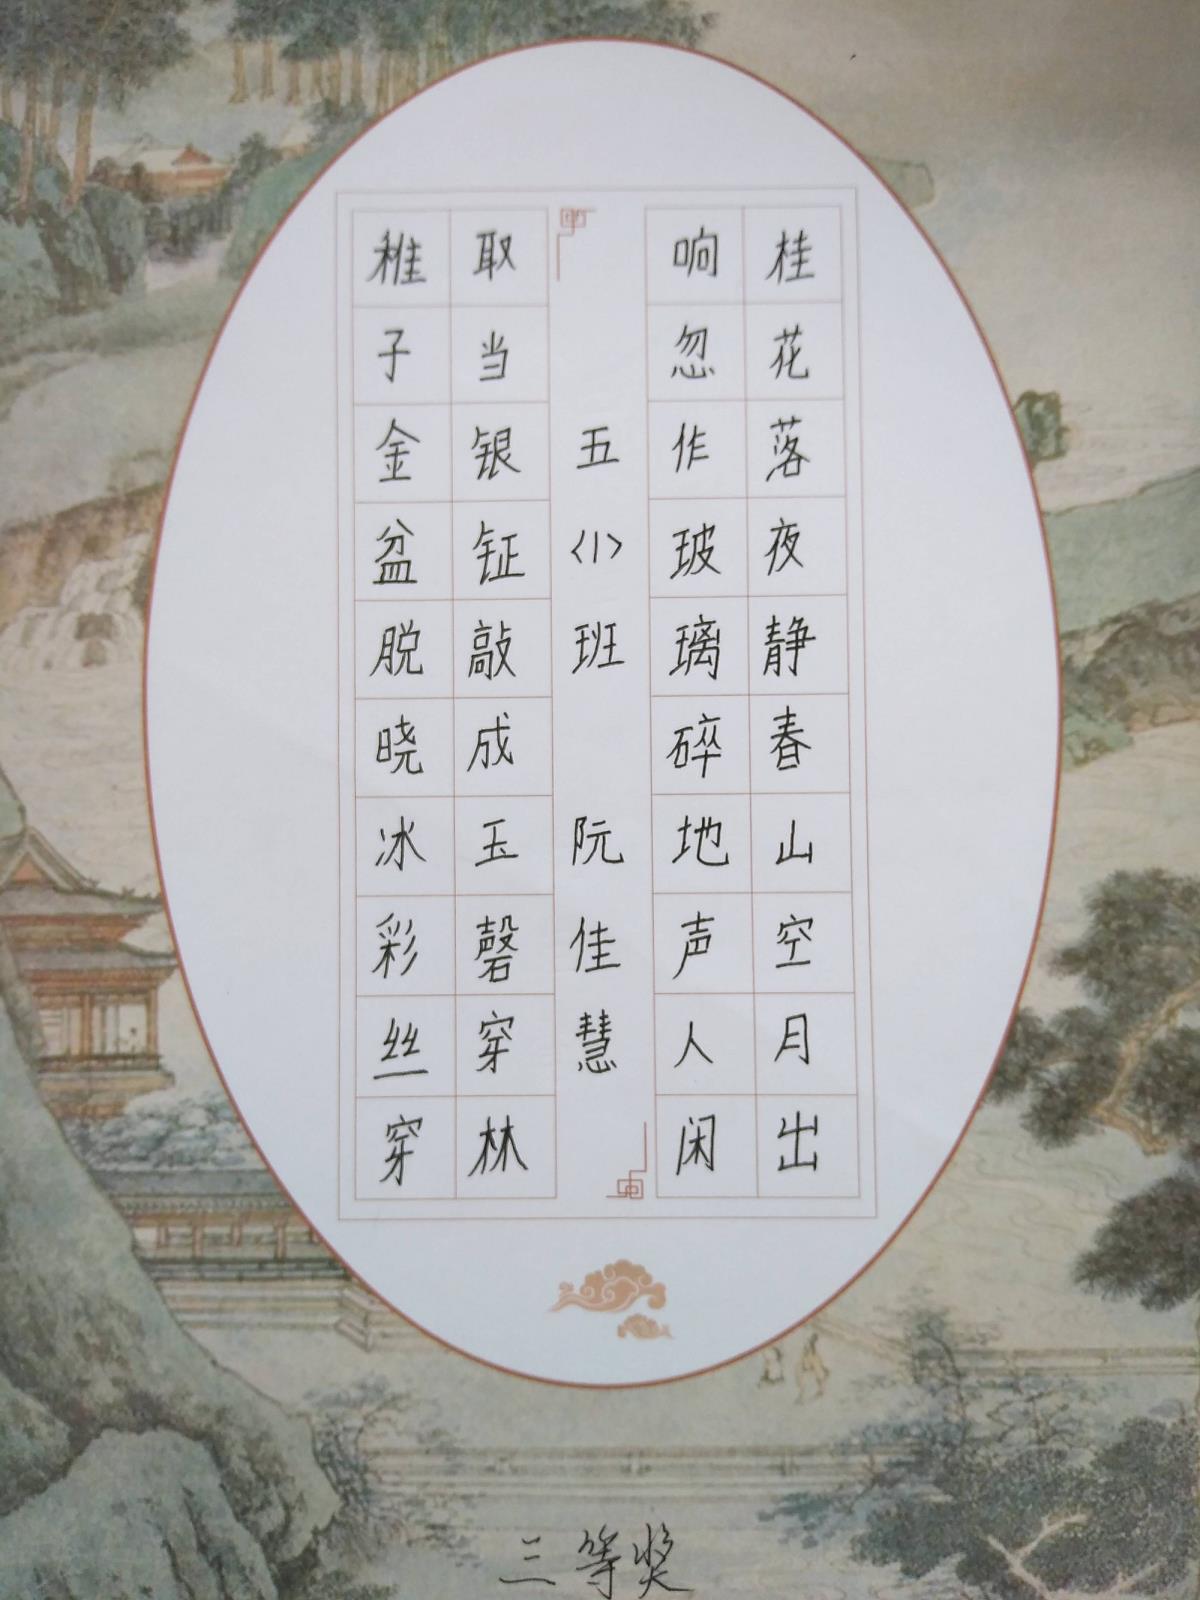 稚子金盆脱晓冰彩丝穿
取当银钲敲成玉磬穿林
五(1)班 阮佳慧
响忽作玻璃碎地声人闲
桂花落夜静春山空月出
三等奖